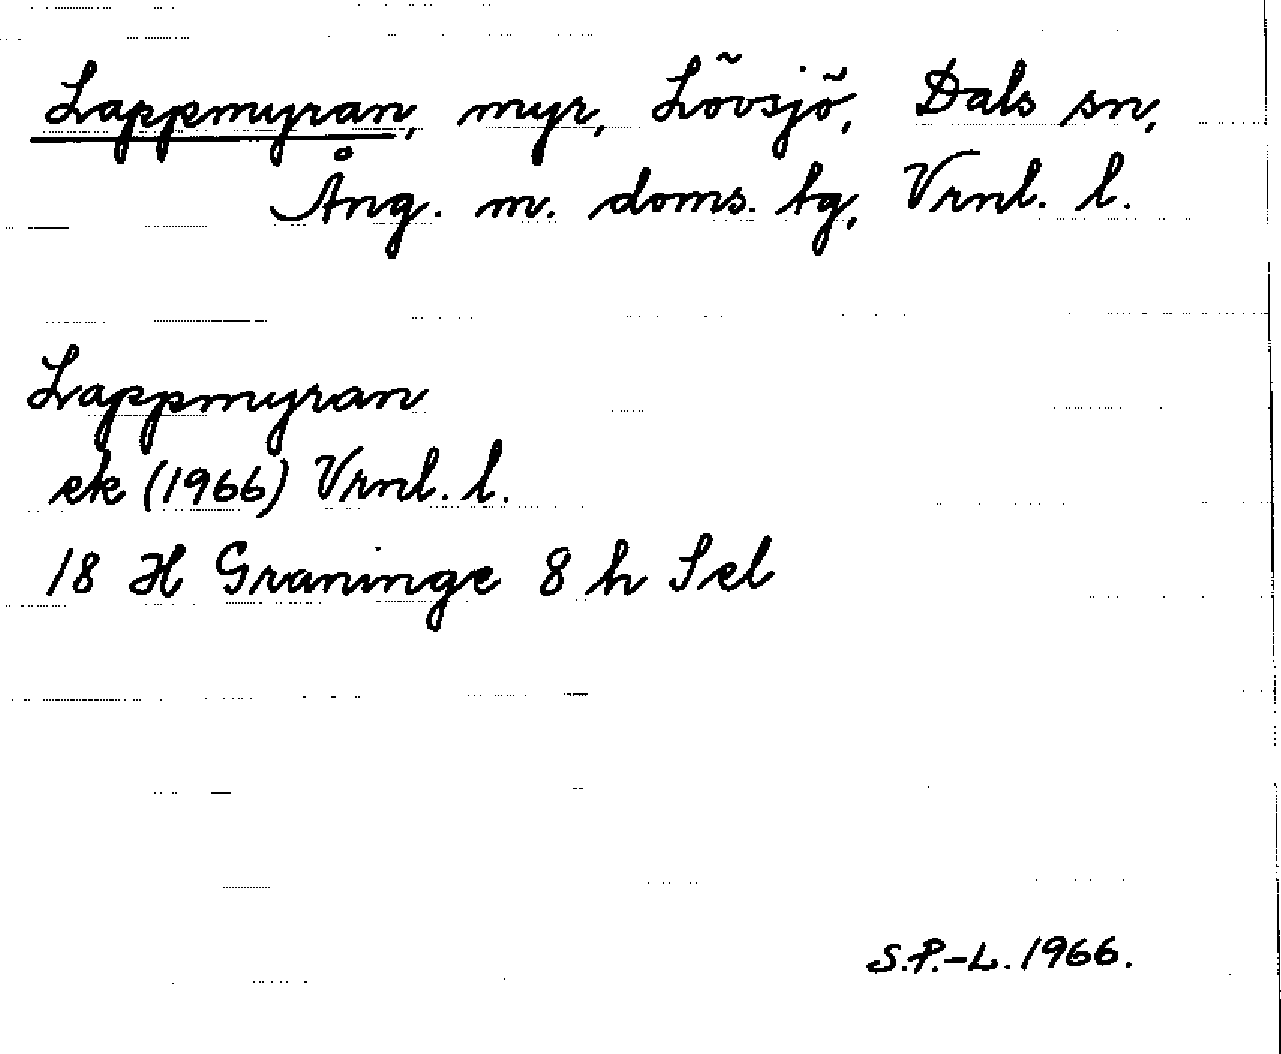 Lappmyran, myr, Lövsjö, Dals sn,
Ång. m. doms. tg, Vrnl. l.
Lappmyran
ek (1966) Vrnl. l.
18 H Graninge 8 h Sel
S.P.-L. 1966.